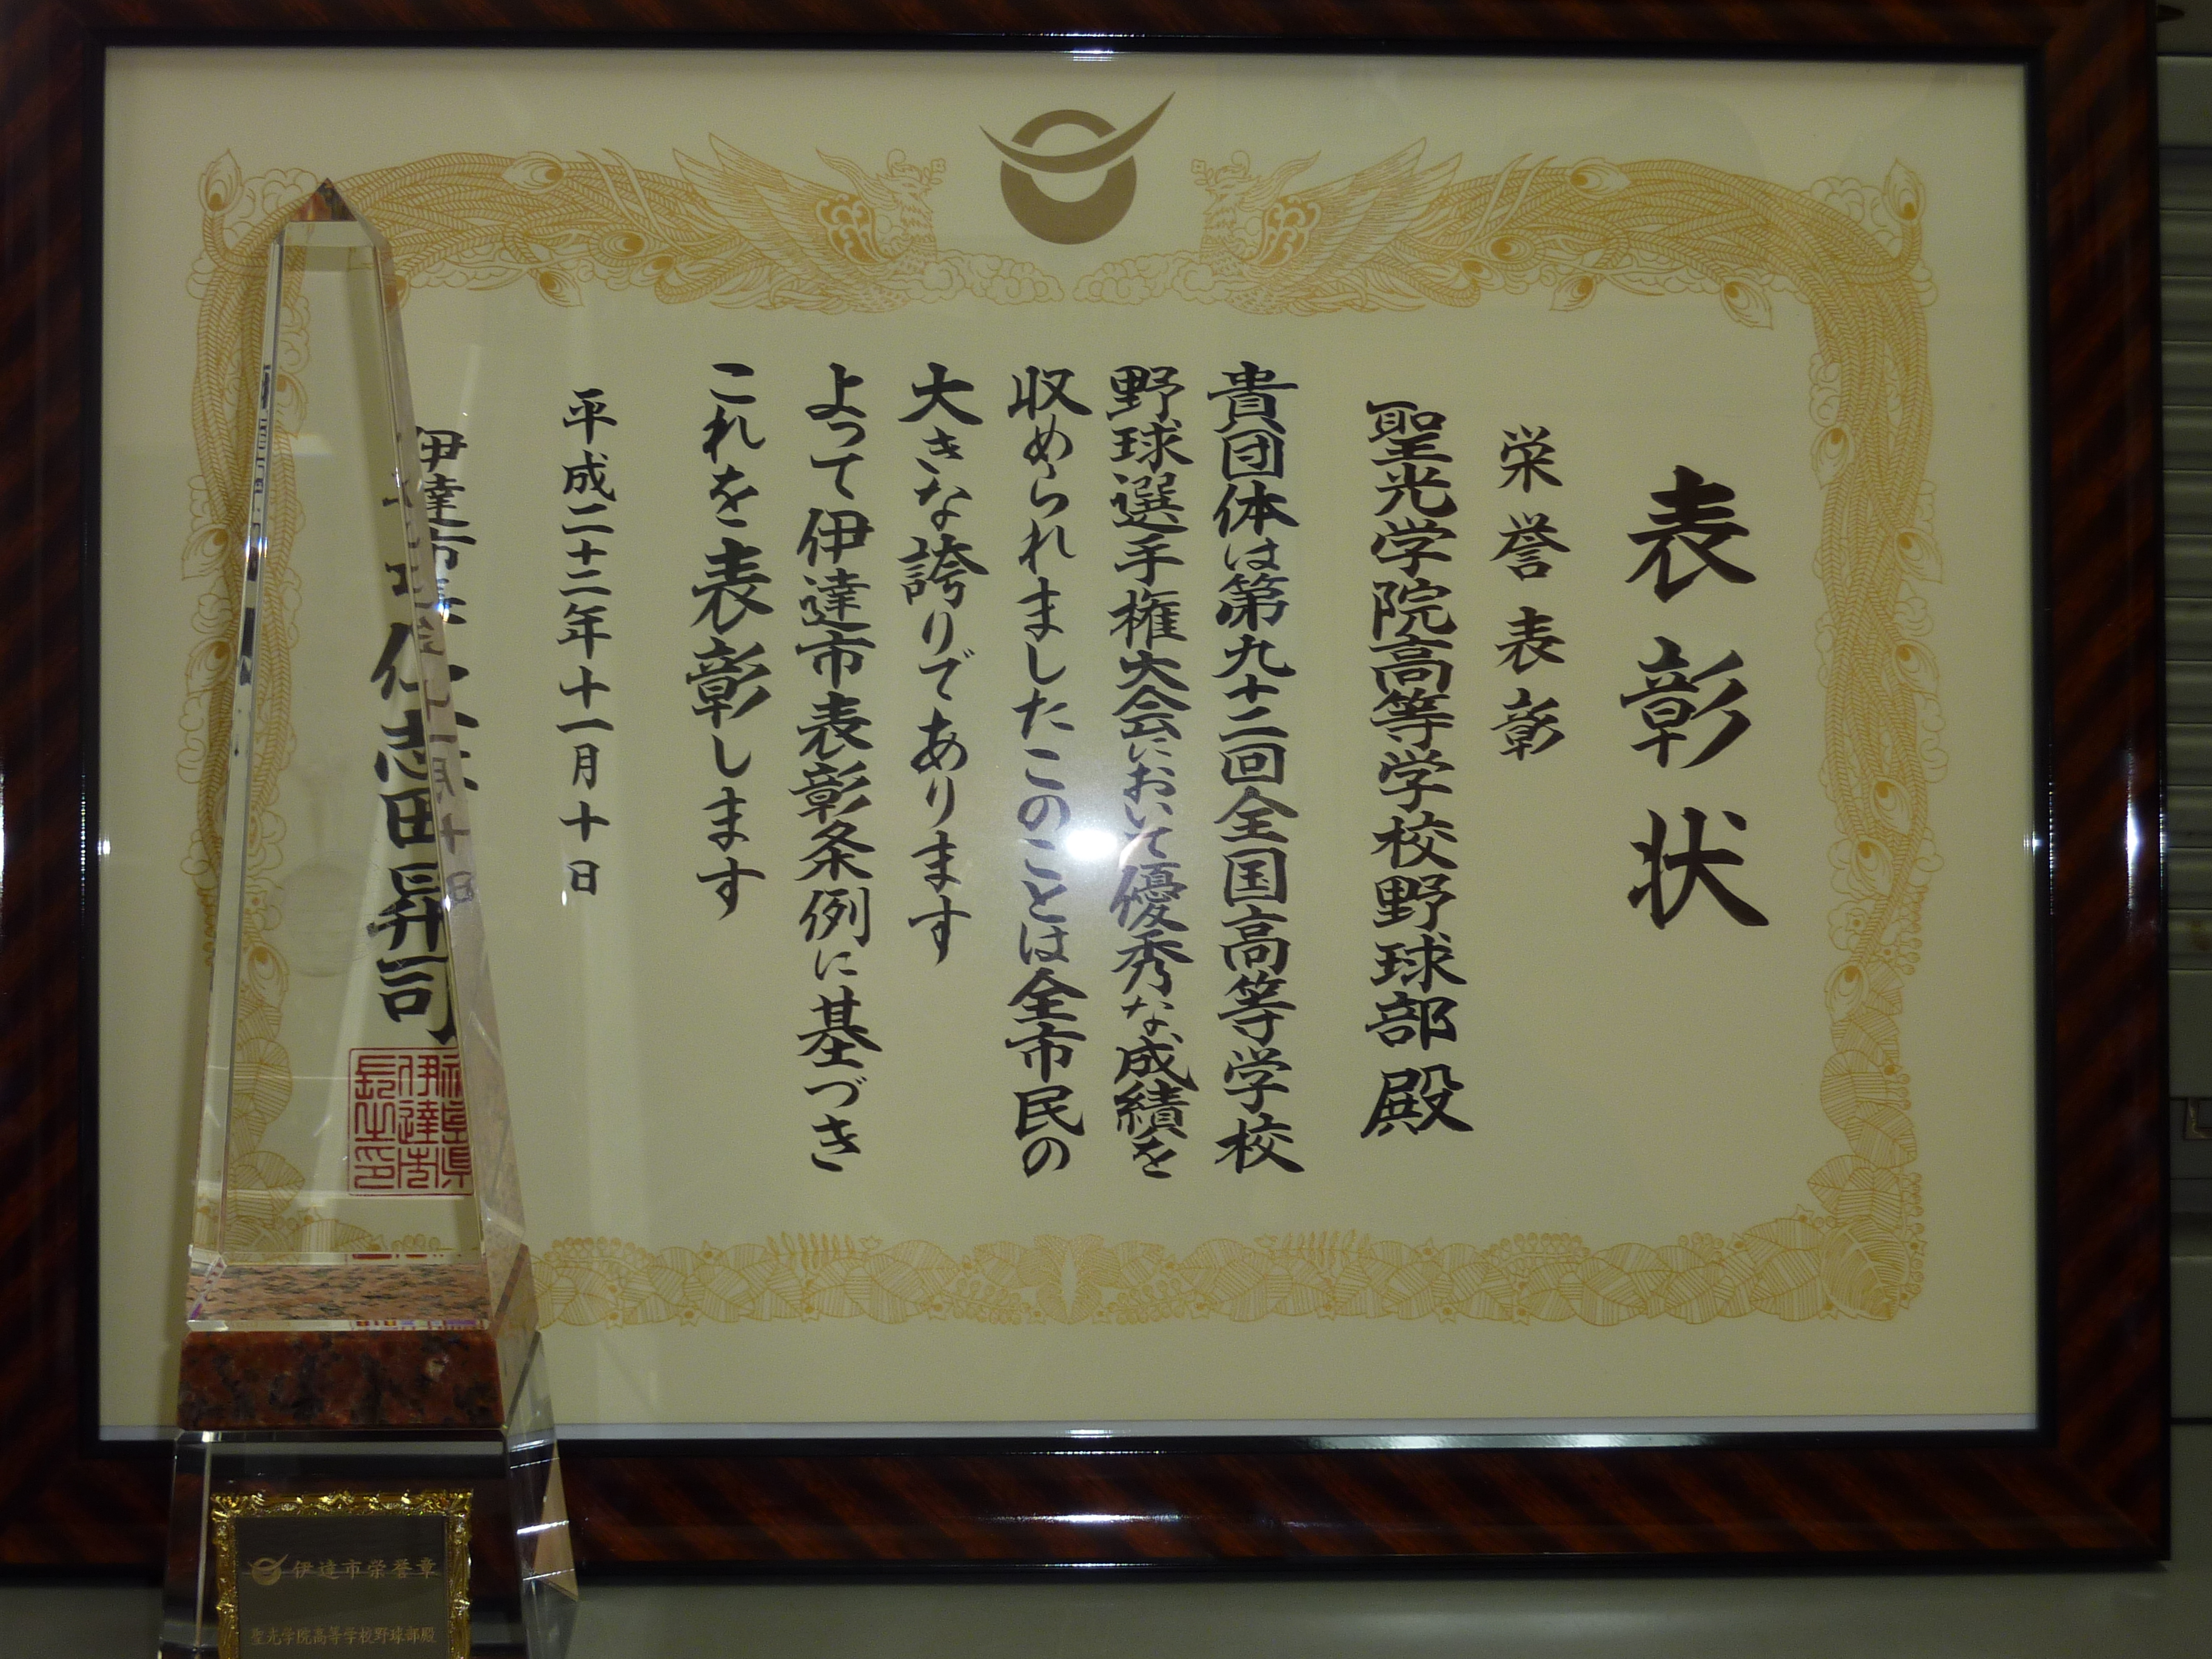 表彰状
栄誉表彰
聖光学院高等学校野球部殿
貴団体は第九十二回全国高等学校
野球選手権大会において優秀な成績を
収められましたこのことは全市民の
大きな誇りであります
よって伊達市表彰条例に基づき
これを表彰します
平成二十二年十一月十日
伊達市長 仁志田昇司
伊達市
長之印
伊達市栄誉章
聖光学院高等学校野球部殿